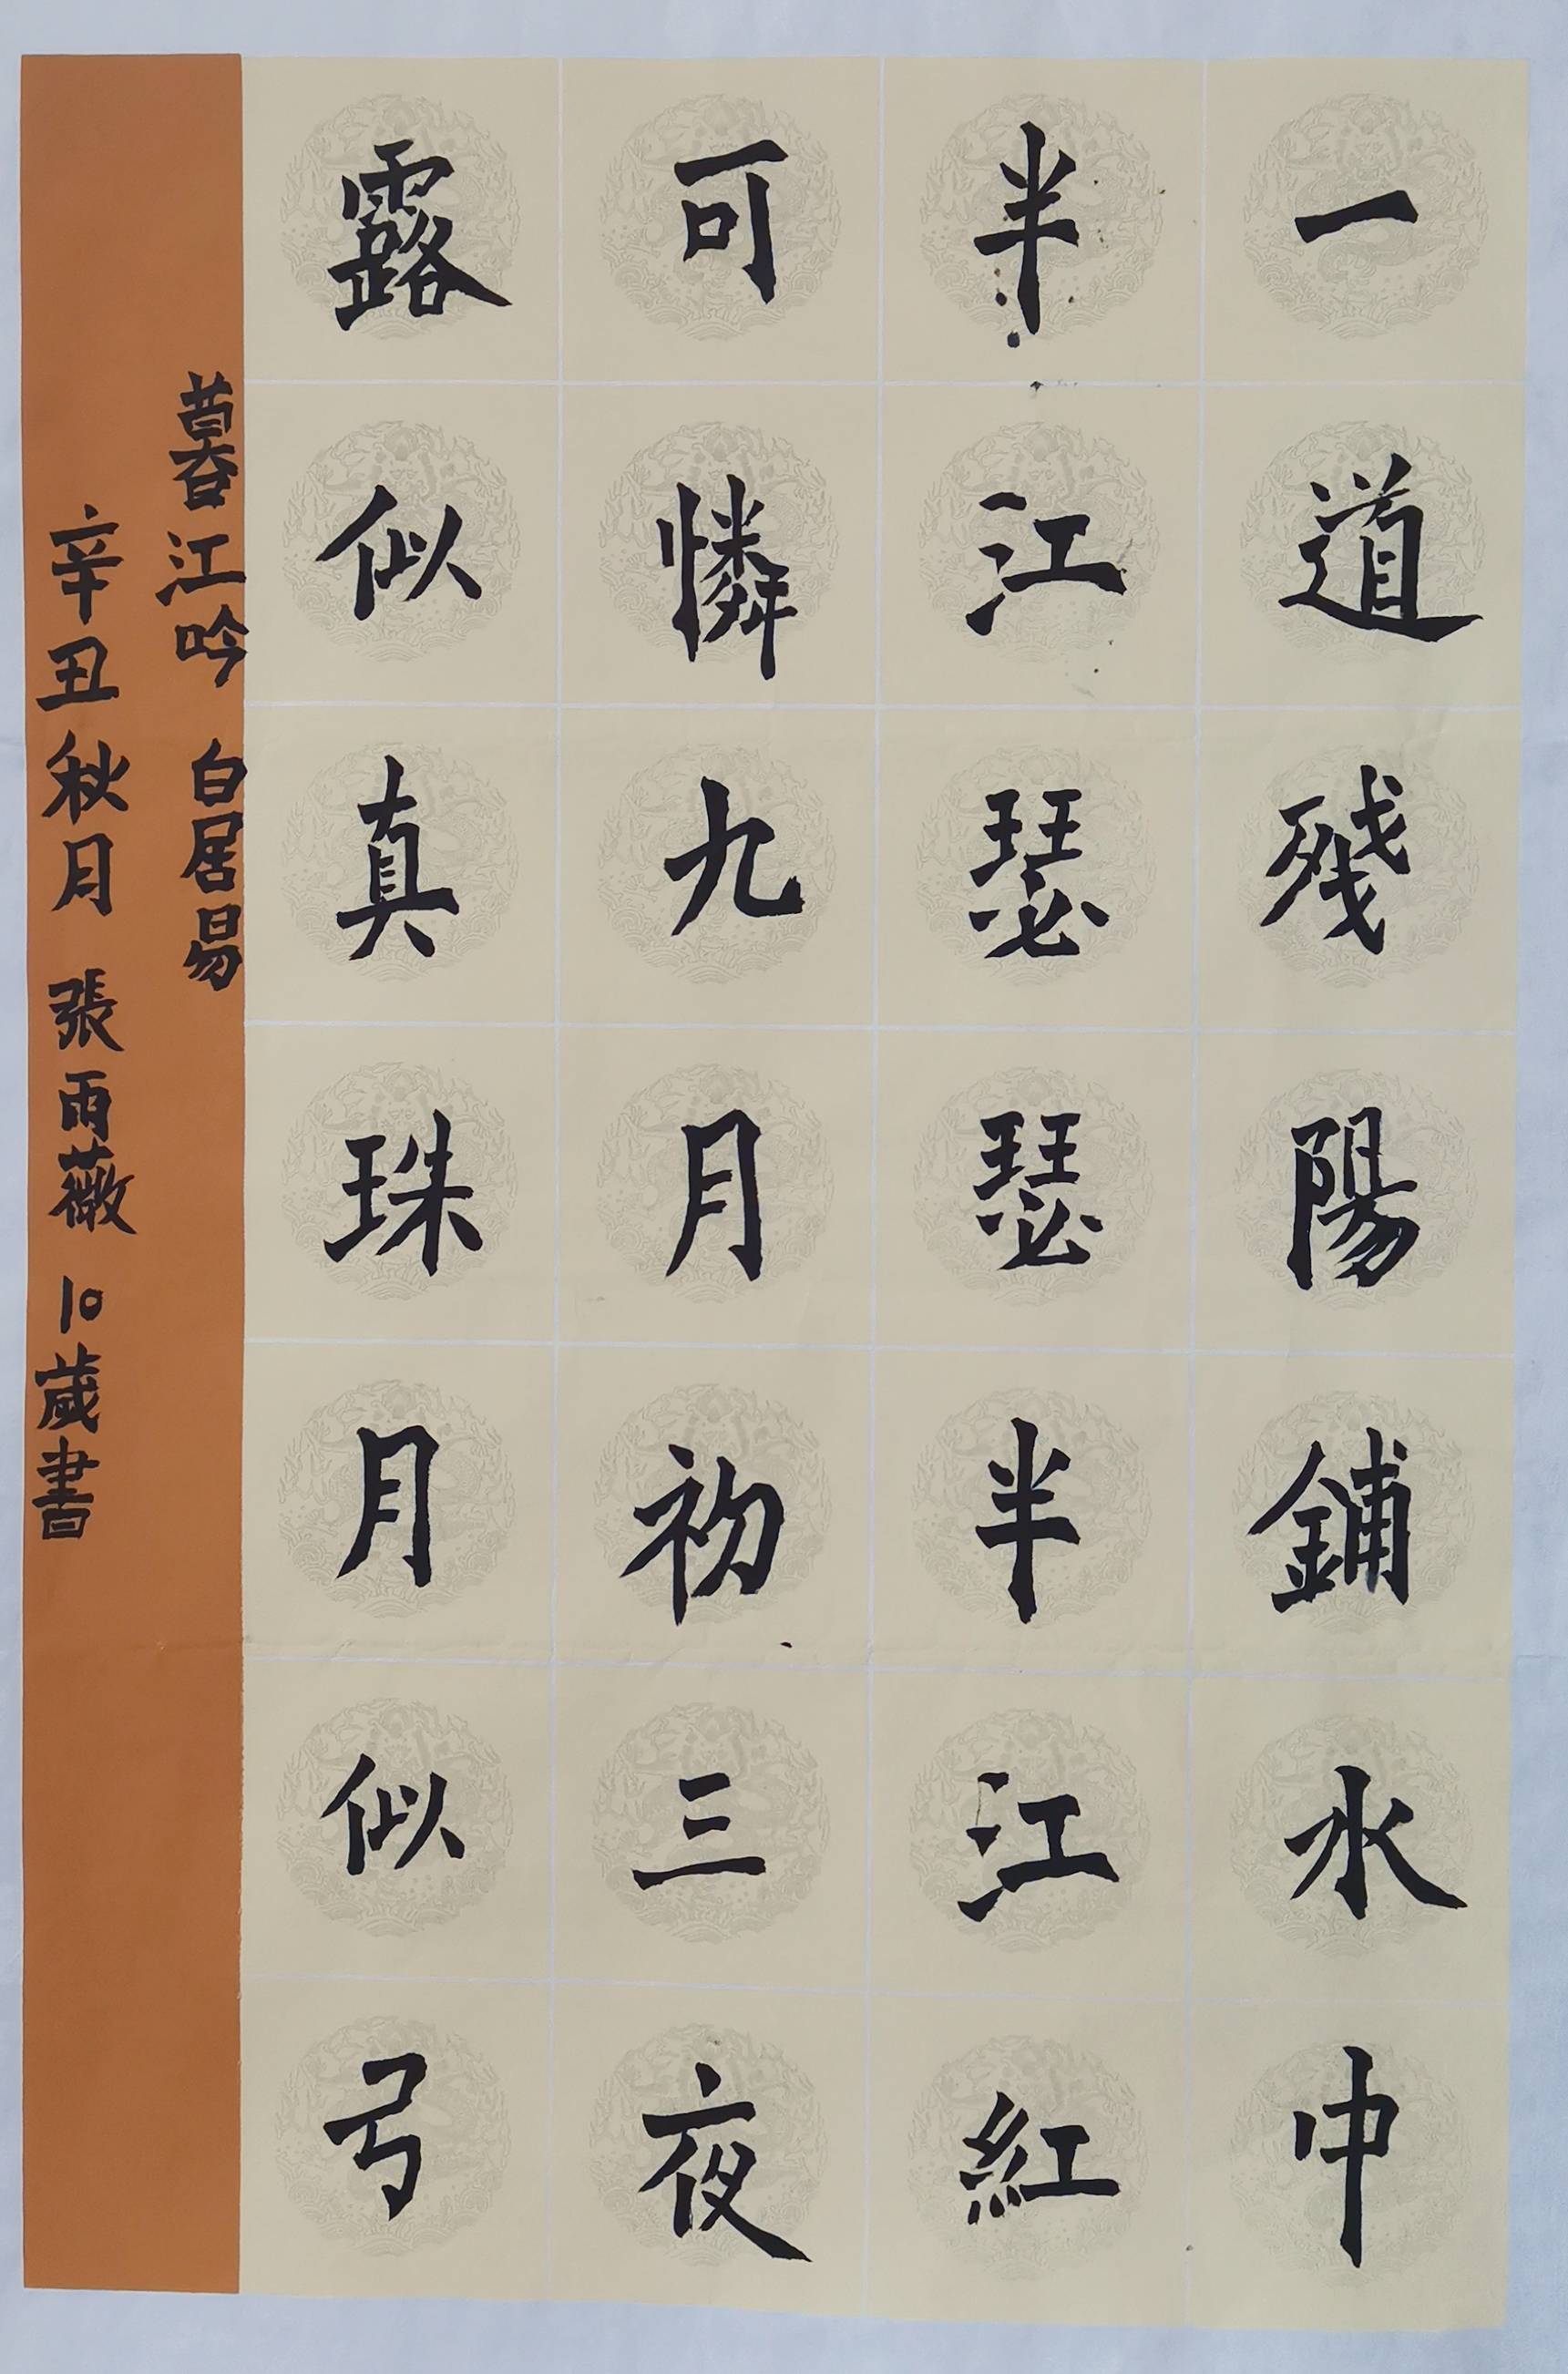 一道残陽鋪水中
半江瑟瑟半江紅
可憐九月初三夜
露似真珠月似弓
暮江吟 白居易
辛丑秋月 張雨薇 10歲書